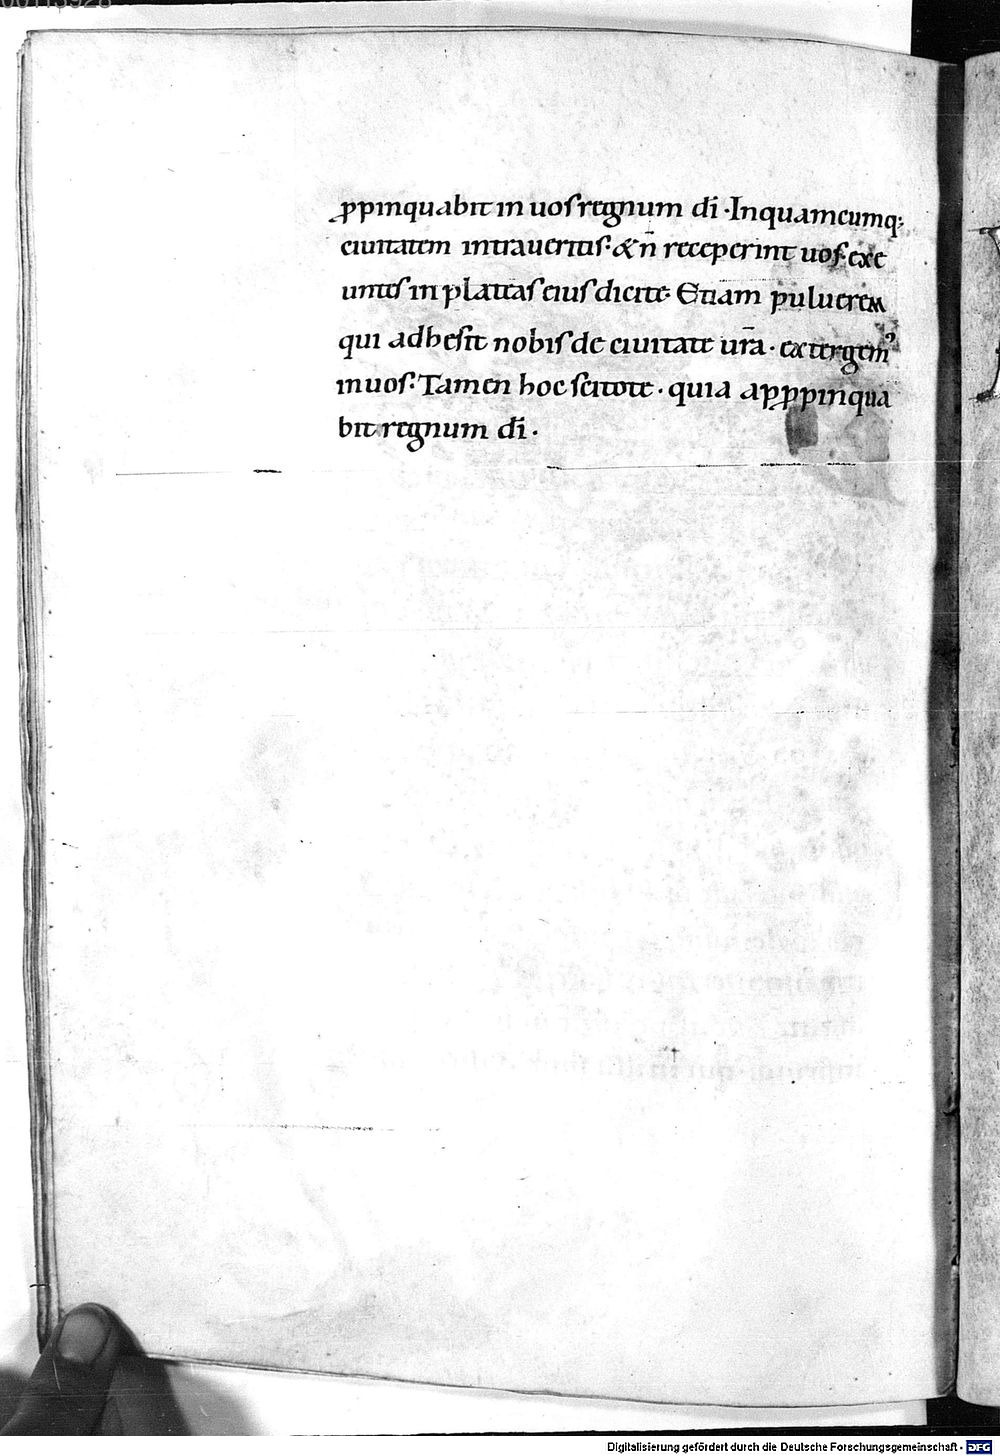 00113928
ꝓpinquabit in uos regnum dī · Inquamcumq;
ciuitatem intraueritis · & n̄ receperint uos · exe
untes in plateas eius dicite · Etiam puluerem
qui adhesit nobis de ciuitate ur̄a · extergimꝰ
in uos · Tamen hoc scitote · quia apꝓpinqua
bit regnum dī ·
Digitalisierung gefördert durch die Deutsche Forschungsgemeinschaft - DFG